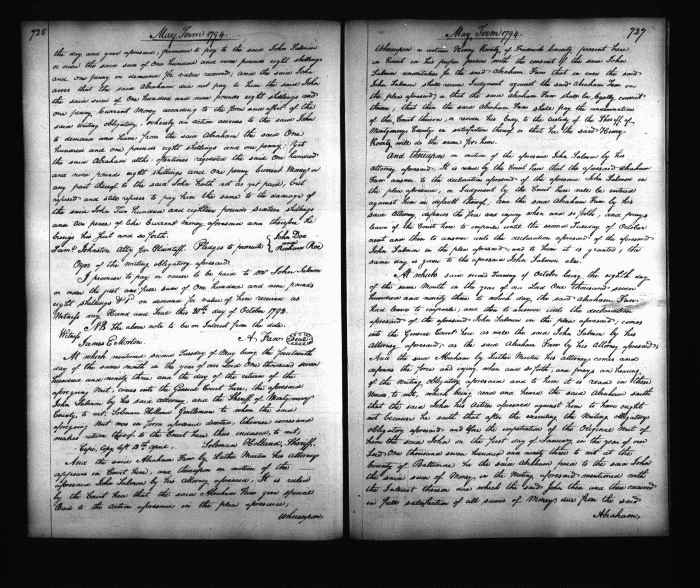 726
May Term 1794.
the day and year aforesaid, promised to pay to the said John Salmon
or order the said sum of One hundred and nine pounds eight shillings
and one penny on demand for value received; and the said John
avers that the said Abraham did not pay to him the said John
the said sum of One hundred and nine pounds eight shillings and
one penny Current Money according to the form and effect of the
said Writing obligatory, whereby an action accrues to the said John
to demand and have from the said Abraham the said One
hundred and nine pounds eight shillings and one penny; Yet
the said Abraham altho. oftentimes requested the said One hundred
and nine pounds eight shillings and one penny Current Money or
any part thereof to the said John hath not as yet paid, but
refused and still refuses to pay him the same to the damage of
the said John Two hundred and eighteen pounds sixteen shillings
and two pence of like Current Money aforesaid and therefore he
brings his suit and so forth.
Saml. Johnston Atty for Plaintiff. Pledges to prosecute { John Doe
Richard Roe
Oyer of the writing obligatory aforesaid:
I promise to pay or cause to be paid to Mr John Salmon
or order the just and full sum of One hundred and nine pounds
eight shillings & 1d on demand for value of him received as
Witness my Hand and Seal this 20th day of October 1792.
NB the above note to be on Interest from the date.
Witness
James C. Morton A. Faw Seal
At which mentioned second Tuesday of May being the fourteenth
day of the same month in the year of our Lord One thousand seven
hundred and ninety three and the day of the return of the
aforegoing Writ, comes into the General Court here, the aforesaid
John Salmon by his said attorney, and the Sheriff of Montgomery
County, to wit, Solomon Holland Gentleman to whom the said
aforegoing Writ was in form aforesaid directed, likewise comes and
makes return thereof to the Court here thus endorsed, to wit,
Cepi, Copy left 12th april. Solomon Holland, Sheriff.
And the said Abraham Faw by Luther Martin his attorney
appears in Court here, and thereupon on motion of the
aforesaid John Salmon by his attorney aforesaid; It is ruled
by the Court here that the said Abraham Faw give special
Bail to the action aforesaid in the plea aforesaid;
Whereupon
May Term 1794.
727
Whereupon a certain Henry Rozaty of Frederick County present here
in Court in his proper person with the consent of the said John
Salmon undertakes for the said Abraham Faw that in case the said
John Salmon shall recover Judgment against the said Abraham Faw in
the plea aforesaid; or that the said Abraham Faw shall be legally convict
thereof, that then the said Abraham Faw shall pay the condemnation
of the Court thereon, or render his body to the Custody of the Sheriff of
Montgomery County in satisfaction thereof or that he the said Henry
will do the same for him.
And thereupon on motion of the aforesaid John Salmon by his
attorney aforesaid, It is ruled by the Court here that the aforesaid Abraham
Faw answer to the declaration aforesaid of the aforesaid John Salmon in
the plea aforesaid, or Judgment by the Court here will be entered
against him in default thereof. And the said Abraham Faw by his
said Attorney, defends the force and injury when and so forth, and prays
leave of the Court here to imparle until the second Tuesday of October
next and then to answer unto the declaration aforesaid of the aforesaid
John Salmon in the plea aforesaid; and to him it is granted, the
same day is given to the aforesaid John Salmon also.
At which said second Tuesday of October being the eighth day
of the same Month in the year of our Lord One thousand seven
hundred and ninety three to which day, the said Abraham Faw
had leave to imparle, and then to answer unto the declaration
aforesaid of the aforesaid John Salmon in the plea aforesaid; comes
into the General Court here as well the said John Salmon by his
Attorney aforesaid, as the said Abraham Faw by his Attorney aforesaid;
And the said Abraham by Luther Martin his attorney comes and
defends the force and injury, when and so forth, and prays an hearing
of the Writing Obligatory aforesaid and to him it is read in these
Words to wit, which being read and heard the said Abraham saith
that the said John his action aforesaid against him to have ought
not because he saith that after the executing the Writing obligatory
aforesaid and after the impetration of the Original Writ of
him the said John on the first day of January in the year of our
Lord One thousand seven hundred and ninety three to wit at the
County of Baltimore he the said Abraham paid to the said John
the said sum of Money, in the Writing aforesaid mentioned with
the Interest thereon due which the said John then and there received
in full satisfaction of all sums of Money due from the said
Abraham,